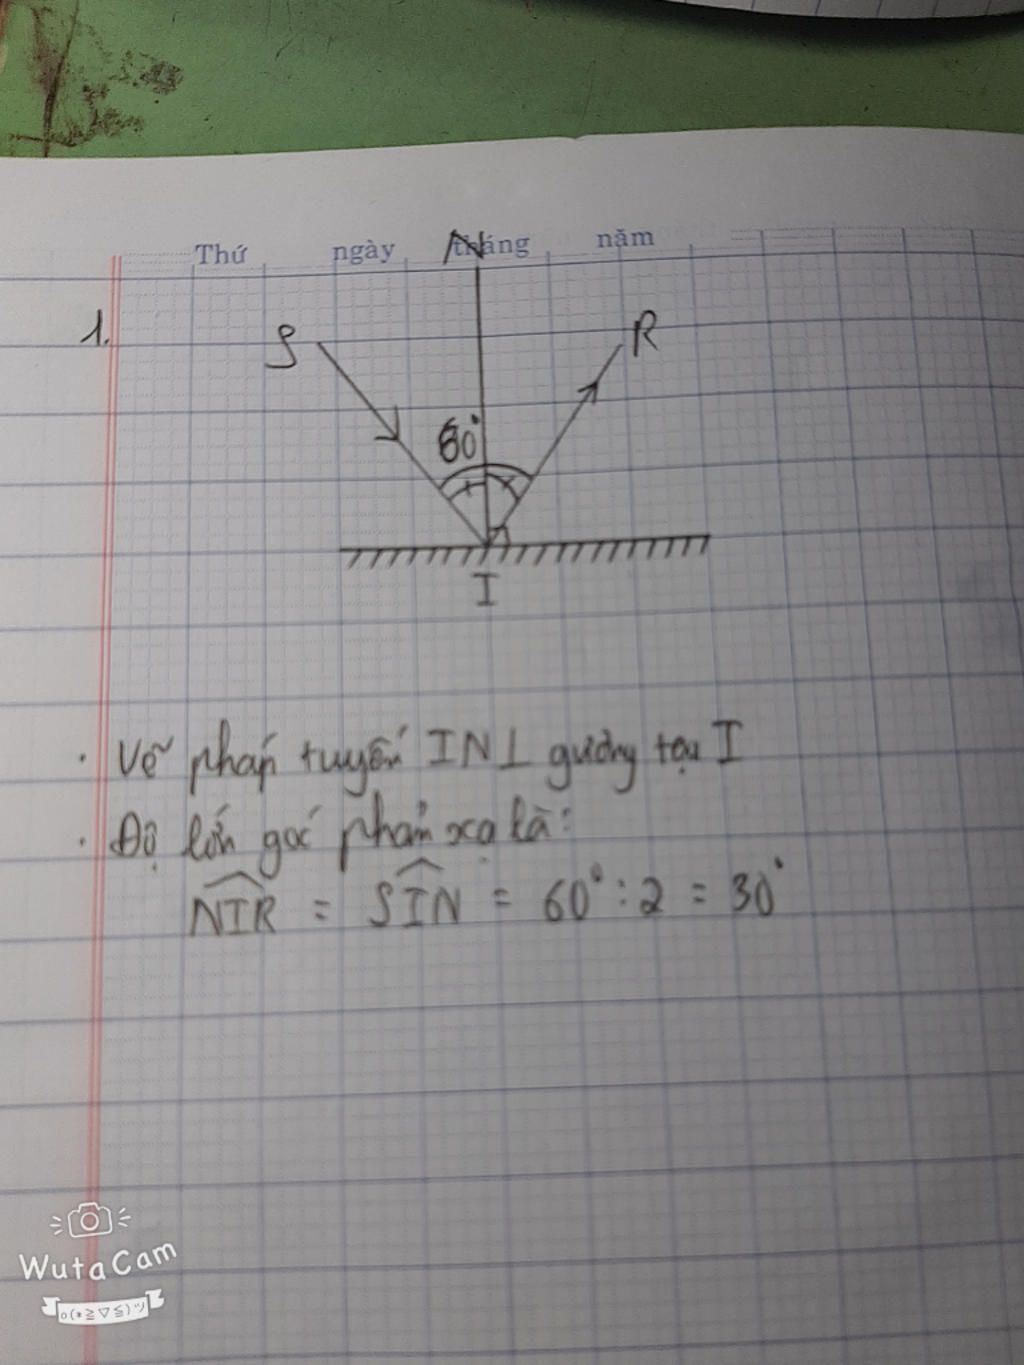 Thứ ngày tháng năm
N
1.
S
R
60°
I
· Vẽ pháp tuyến IN⊥ gương tại I
· Độ lớn góc phản xạ là:
NIR = SIN = 60° : 2 = 30°
WutaCam
o(*≧▽≦)ツ